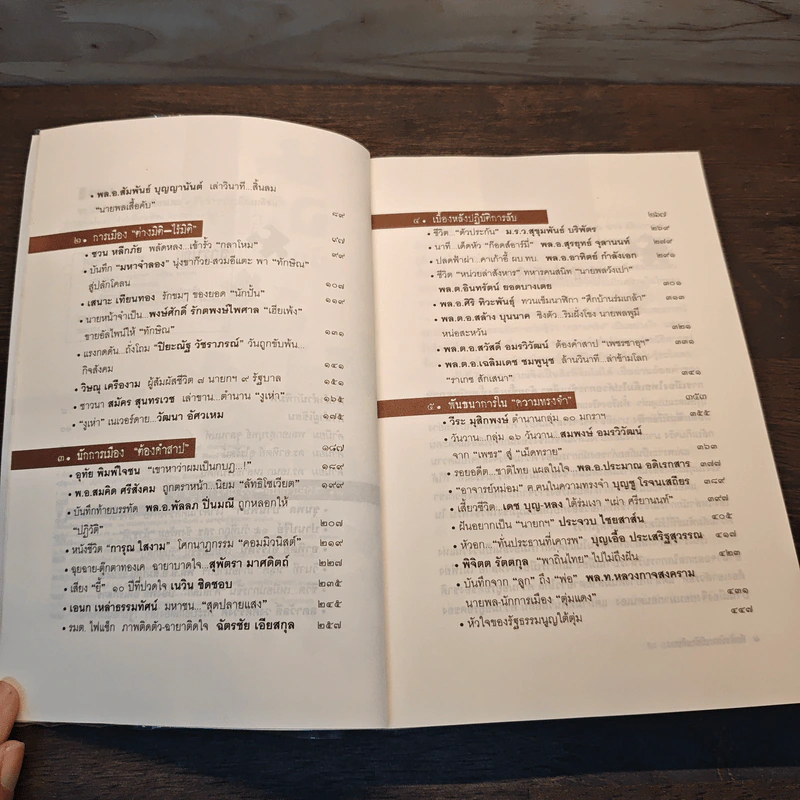 • พล.อ.สัมพันธ์ บุญญานันต์ เล่าวินาที...สิ้นลม
"นายพลเสื้อคับ" ๘๙
๒. การเมือง "ต่างมิติ-ไร้มิติ" ๙๗
• ชวน หลีกภัย พลัดหลง...เข้ารั้ว "กลาโหม" ๙๙
• บันทึก "มหาจำลอง" นุ่งขาก๊วย-สวมอีแตะ พา "ทักษิณ"
สู่ปลักโคลน ๑๐๗
• เสนาะ เทียนทอง รักขมๆ ของยอด "นักปั้น" ๑๑๙
• นายหน้าจำเป็น...พงษ์ศักดิ์ รักตพงษ์ไพศาล "เฮียเพ้ง"
ขายอัลไพน์ให้ "ทักษิณ" ๑๓๑
• แรงกดดัน...ถั่งโถม "ปิยะณัฐ วัชราภรณ์" วันถูกขับพ้น...
กิจสังคม ๑๔๑
• วิษณุ เครืองาม ผู้สัมผัสชีวิต ๗ นายกฯ ๙ รัฐบาล ๑๕๑
• ชาวนา สมัคร สุนทรเวช เล่าขาน...ตำนาน "งูเห่า" ๑๖๕
• "งูเห่า" เนเวอร์ดาย...วัฒนา อัศวเหม ๑๗๕
๓. นักการเมือง "ต้องคำสาป" ๑๘๗
• อุทัย พิมพ์ใจชน "เขาหาว่าผมเป็นกบฏ...!" ๑๘๙
• พ.อ.สมคิด ศรีสังคม ถูกตราหน้า...นิยม "ลัทธิโซเวียต" ๑๙๙
• บันทึกท้ายบรรทัด พล.อ.พัลลภ ปิ่นมณี ถูกหลอกให้
"ปฏิวัติ" ๒๐๗
• หนังชีวิต "การุณ ใสงาม" โศกนาฏกรรม "คอมมิวนิสต์" ๒๑๙
• ฉุยฉาย-ตุ๊กตาทองเค ฉายาบาดใจ...สุพัตรา มาศดิตถ์ ๒๒๗
• เสียง "ยี้" ๑๐ ปีที่ปวดใจ เนวิน ชิดชอบ ๒๓๕
• เอนก เหล่าธรรมทัศน์ มหาชน..."สุดปลายแสง" ๒๔๕
• รมต. ไฟแช็ก ภาพติดตัว-ฉายาติดใจ ฉัตรชัย เอียสกุล ๒๕๗
๔. เบื้องหลังปฏิบัติการลับ ๒๖๗
• ชีวิต..."ตัวประกัน" ม.ร.ว.สุขุมพันธุ์ บริพัตร ๒๖๙
• นาที...เด็ดหัว "ก๊อดส์อาร์มี่" พล.อ.สุรยุทธ์ จุลานนท์ ๒๗๙
• ปลดฟ้าผ่า..คาเก้าอี้ ผบ.ทบ. พล.อ.อาทิตย์ กำลังเอก ๒๙๑
• ชีวิต "หน่วยล่าสังหาร" ทหารคนสนิท "นายพลวังเปา"
พล.ต.อินทรัตน์ ยอดบางเตย ๓๐๑
• พล.อ.ศิริ ทิวะพันธุ์ ทวนเข็มนาฬิกา "ศึกบ้านร่มเกล้า" ๓๑๓
• พล.ต.อ.สล้าง บุนนาค ชิงตัว...ริมฝั่งโขง นายพลพูมี
หน่อสะหวัน ๓๒๑
• พล.ต.อ.สวัสดิ์ อมรวิวัฒน์ ต้องคำสาป "เพชรซาอุฯ" ๓๓๑
• พล.ต.อ.เฉลิมเดช ชมพูนุช ล้านวินาที...ล่าข้ามโลก
"ราเกซ สักเสนา" ๓๔๑
๕. ทัณฑนาการใน "ความทรงจำ" ๓๕๓
• วีระ มุสิกพงษ์ ตำนานกลุ่ม ๑๐ มกราฯ ๓๕๕
• วันวาน...กลุ่ม ๑๖ วันวาน...สมพงษ์ อมรวิวัฒน์
จาก "เพชร" สู่ "เม็ดทราย" ๓๖๓
• รอยอดีต...ชาติไทย แผลในใจ...พล.อ.ประมาณ อดิเรกสาร ๓๗๗
• "อาจารย์หม่อม" ค.คนในความทรงจำ บุญชู โรจนเสถียร ๓๘๙
• เสี้ยวชีวิต...เดช บุญ-หลง ใต้ร่มเงา "เผ่า ศรียานนท์" ๓๙๗
• ฝันอยากเป็น "นายกฯ" ประจวบ ไชยสาส์น ๔๐๕
• หัวอก..."ท่านประธานที่เคารพ" บุญเอื้อ ประเสริฐสุวรรณ ๔๑๘
• พิจิตต รัตตกุล "พาถิ่นไทย" ไปไม่ถึงฝัน ๔๒๓
• บันทึกจาก "ลูก" ถึง "พ่อ" พล.ท.หลวงกาจสงคราม
นายพล-นักการเมือง "ตุ่มแดง" ๔๓๑
• หัวใจของรัฐธรรมนูญใต้ตุ่ม ๔๔๗